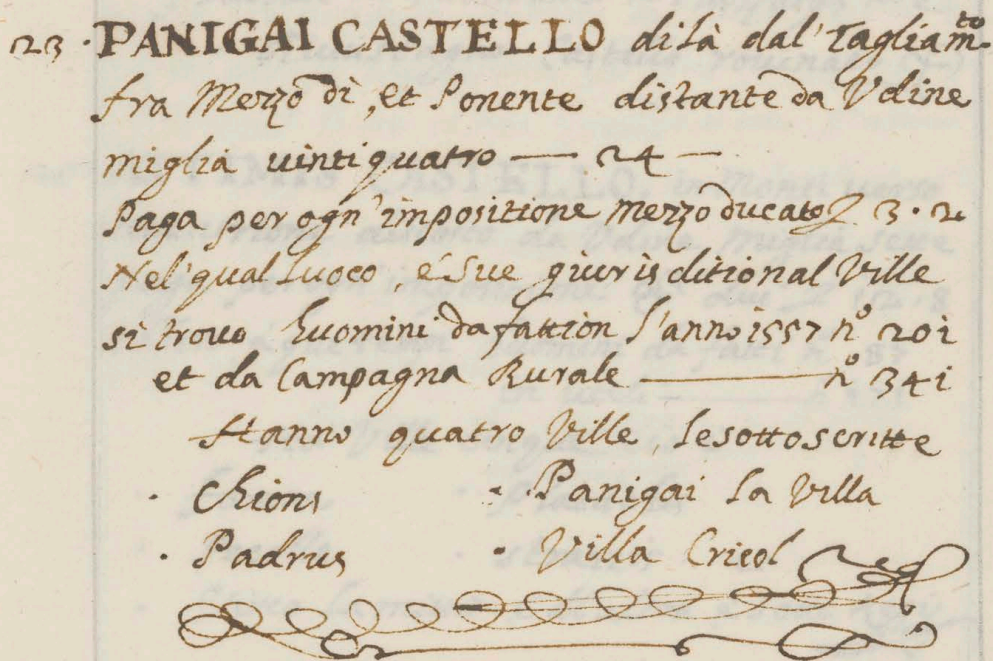 23 · PANIGAI CASTELLO di là dal' Tagliam.to
fra Mezzo dì, et Ponente distante da Vdine
miglia vintiquatro — 24 —
Paga per ogn' impositione mezzo ducato 3 · 2
Nel' qual Luoco, é sue giurisditional Ville
si trouo huomini da fattion l'anno 1557 nº 201
et da Campagna Rurale — nº 341
Hanno quatro Ville, le sottoscritte
· Chions · Panigai la Villa
· Padrus · Villa Cricol